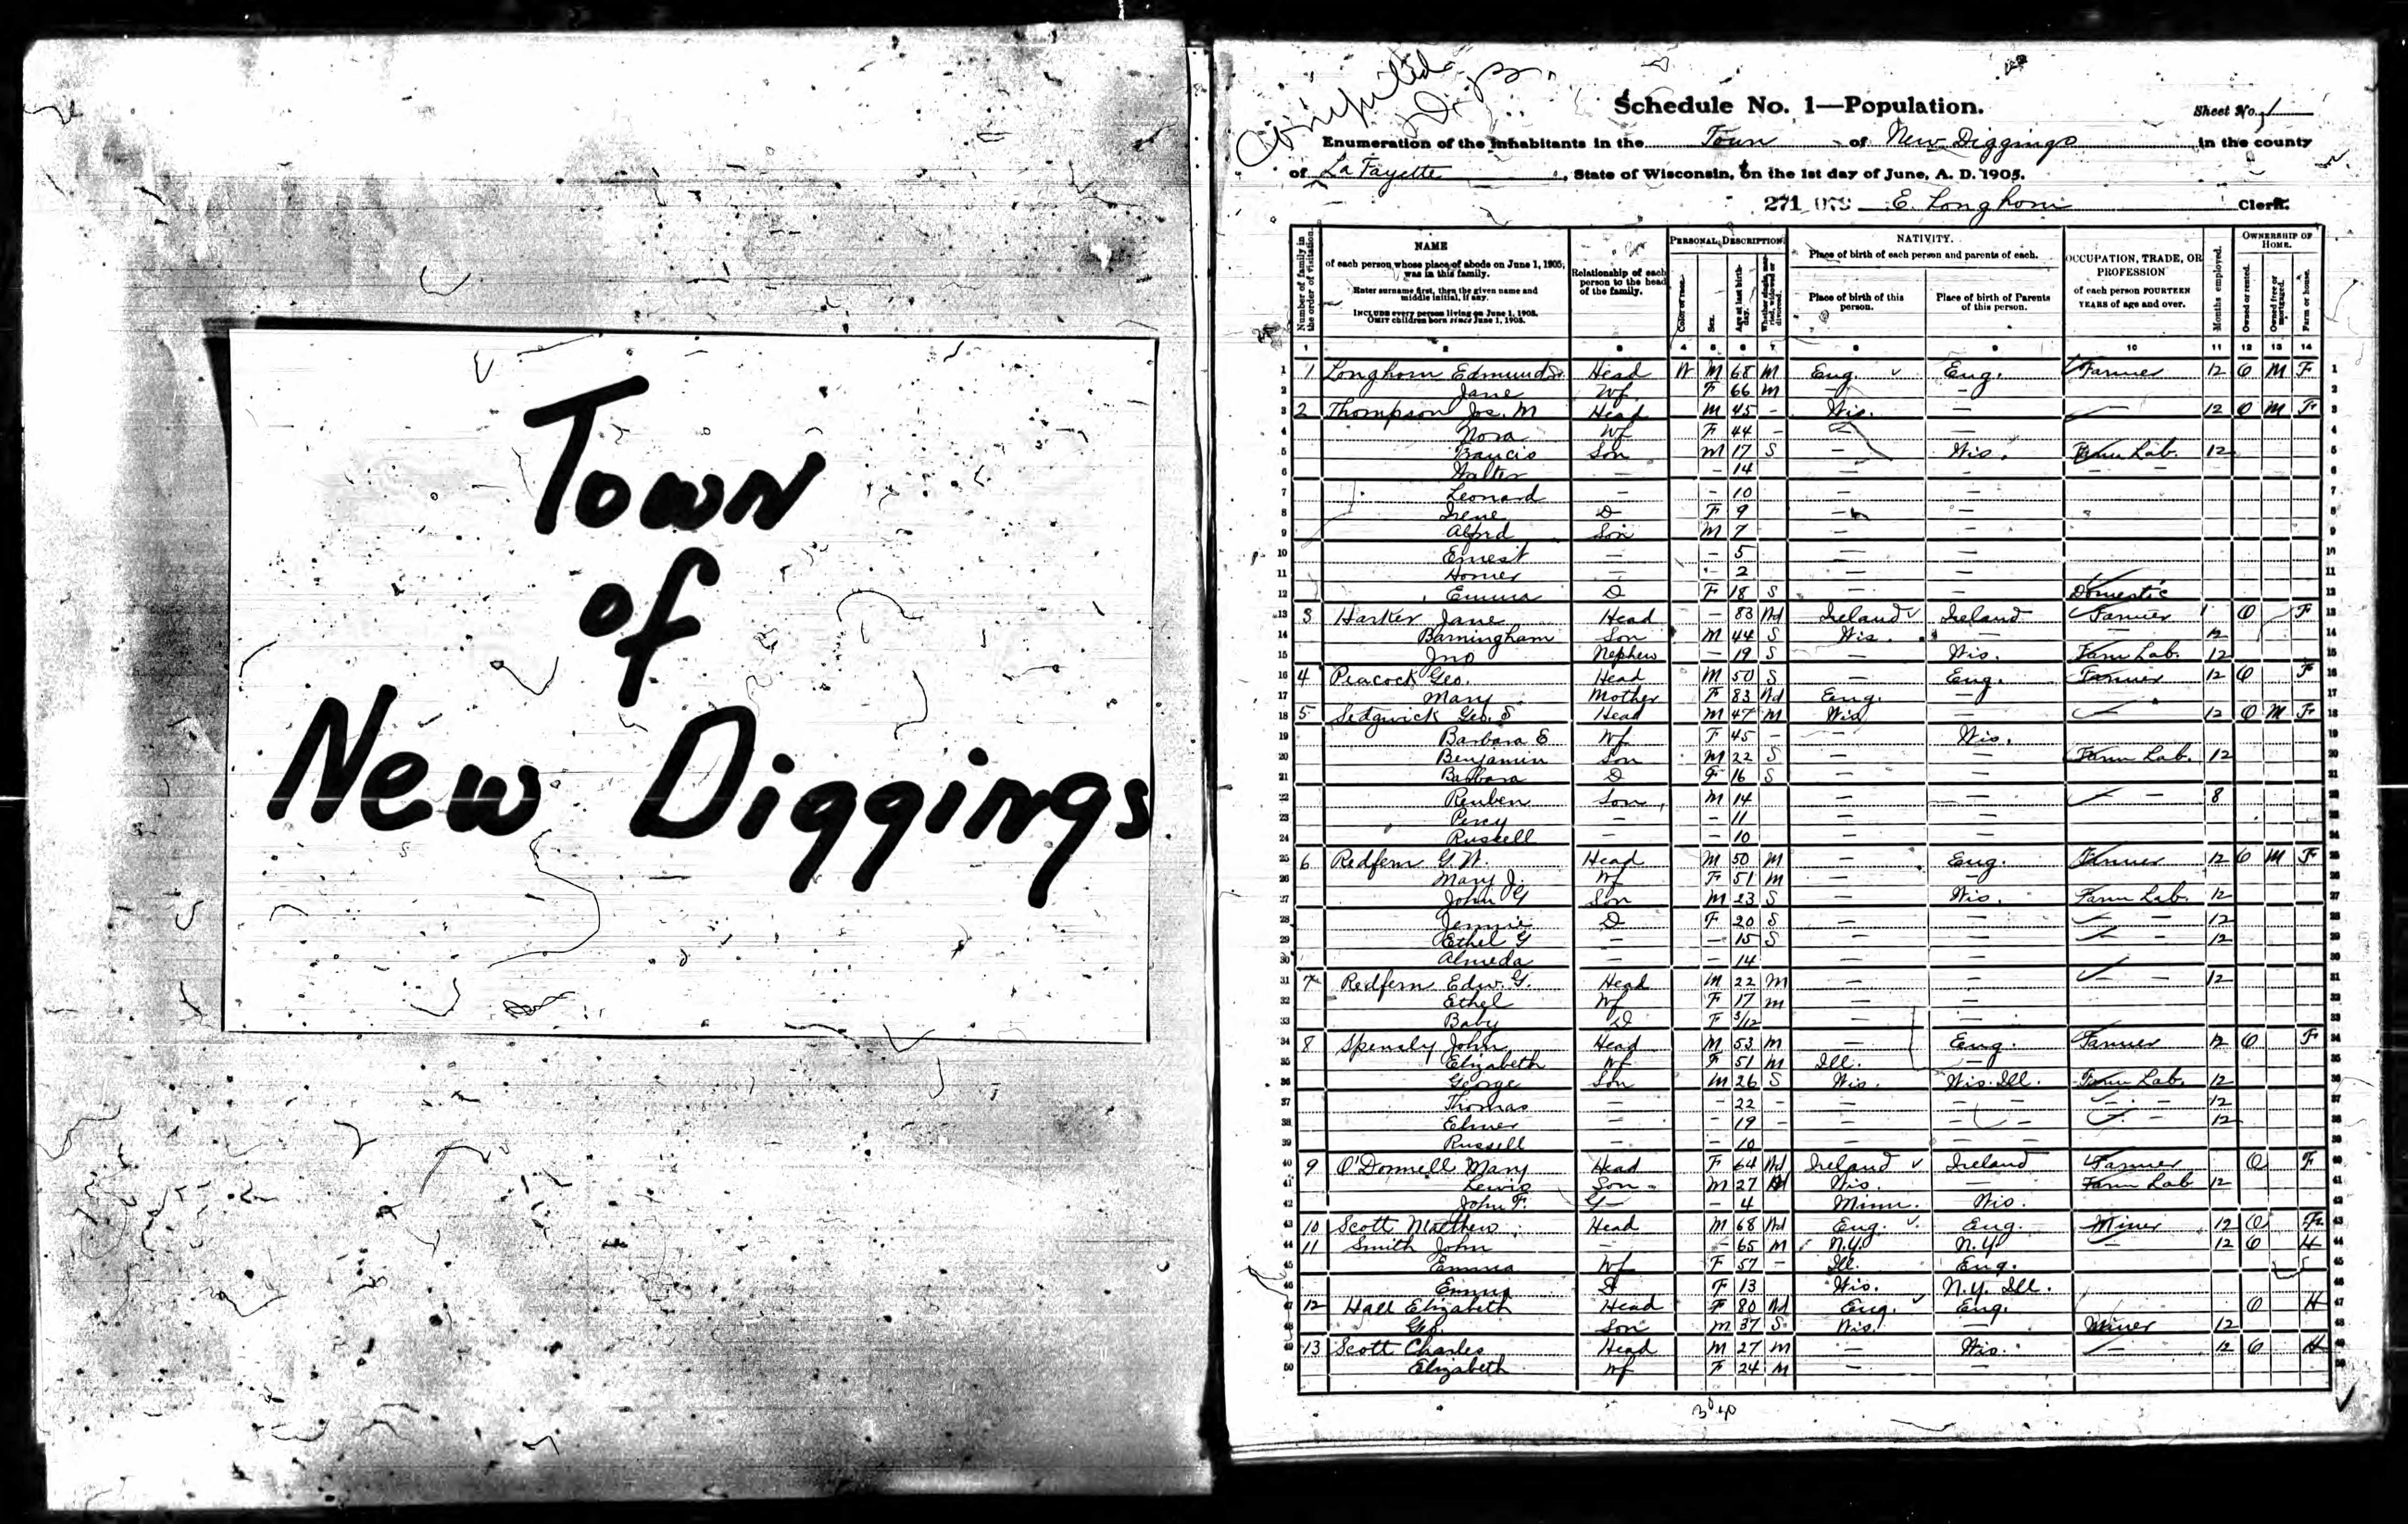 Town
of
New Diggings
Compiled
Schedule No. 1—Population.
Sheet No. 1
Enumeration of the Inhabitants in the Town of New Diggings in the county
of La Fayette, State of Wisconsin, on the 1st day of June, A. D. 1905.
271 E. Longhorn Clerk.
Number of family in the order of visitation.
NAME
of each person whose place of abode on June 1, 1905, was in this family.
Enter surname first, then the given name and middle initial, if any.
INCLUDE every person living on June 1, 1905.
OMIT children born since June 1, 1905.
Relationship of each person to the head of the family.
PERSONAL DESCRIPTION.
Color or race.
Sex.
Age at last birthday.
Whether single, married, widowed or divorced.
NATIVITY.
Place of birth of each person and parents of each.
Place of birth of this person.
Place of birth of Parents of this person.
OCCUPATION, TRADE, OR PROFESSION
of each person FOURTEEN YEARS of age and over.
Months employed.
OWNERSHIP OF HOME.
Owned or rented.
Owned free or mortgaged.
Farm or house.
1 2 3 4 5 6 7 8 9 10 11 12 13 14
1 1 Longhorn Edmund Head W M 68 M Eng. Eng. Farmer 12 O M F 1
2 Jane Wf F 66 M — — 2
3 2 Thompson Jos. M Head M 45 - Wis. — — 12 O M F 3
4 Nora Wf F 44 - — — 4
5 Francis Son M 17 S — Wis. Farm Lab. 12 5
6 Walter — - 14 — — — — 6
7 Leonard — - 10 — — 7
8 Irene D F 9 — — 8
9 Alfrd Son M 7 — — 9
10 Ernest — - 5 — — 10
11 Homer — - 2 — — 11
12 Emma D F 18 S — — Domestic 12
13 3 Harker Jane Head - 83 Wd Ireland Ireland Farmer O F 13
14 Barningham Son M 44 S Wis. — — 12 14
15 Jno Nephew - 19 S — Wis. Farm Lab. 12 15
16 4 Peacock Geo. Head M 50 S — Eng. Farmer 12 O F 16
17 Mary Mother F 83 Wd Eng. — 17
18 5 Sedgwick Geo. S Head M 47 M Wis — — 12 O M F 18
19 Barbara E Wf F 45 - — Wis. 19
20 Benjamin Son M 22 S — — Farm Lab. 12 20
21 Barbara D F 16 S — — 21
22 Reuben Son M 14 — — — — 8 22
23 Percy — - 11 — — 23
24 Russell — - 10 — — 24
25 6 Redfern G. W. Head M 50 M — Eng. Farmer 12 O M F 25
26 Mary J. Wf F 51 M — — 26
27 John G Son M 23 S — Wis. Farm Lab. 12 27
28 Jennie D F 20 S — — — — 12 28
29 Ethel G — - 15 S — — — — 12 29
30 Almeda — - 14 — — 30
31 7 Redfern Edw. G. Head M 22 M — — — — 12 31
32 Ethel Wf F 17 M — — 32
33 Baby D F 3/12 — — 33
34 8 Spensly John Head M 53 M — Eng. Farmer 12 O F 34
35 Elizabeth Wf F 51 M Ill. — 35
36 George Son M 26 S Wis. Wis. Ill. Farm Lab. 12 36
37 Thomas — - 22 - — — — — — 12 37
38 Elmer — - 19 - — — — — — 12 38
39 Russell — - 10 — — — 39
40 9 O'Donnell Mary Head F 64 Wd Ireland Ireland Farmer O F 40
41 Lewis Son M 27 Wd Wis. — Farm Lab 12 41
42 John F. G— - 4 Minn. Wis. 42
43 10 Scott Matthew Head M 68 Wd Eng. Eng. Miner 12 O F 43
44 11 Smith John — - 65 M N.Y. N.Y — 12 O H 44
45 Emma Wf F 57 - Ill. Eng. 45
46 Emma D F 13 Wis. N.Y. Ill. 46
47 12 Hall Elizabeth Head F 80 Wd Eng. Eng. O H 47
48 Geo. Son M 37 S Wis. — Miner 12 48
49 13 Scott Charles Head M 27 M — Wis. — 12 O H 49
50 Elizabeth Wf F 24 M — — 50